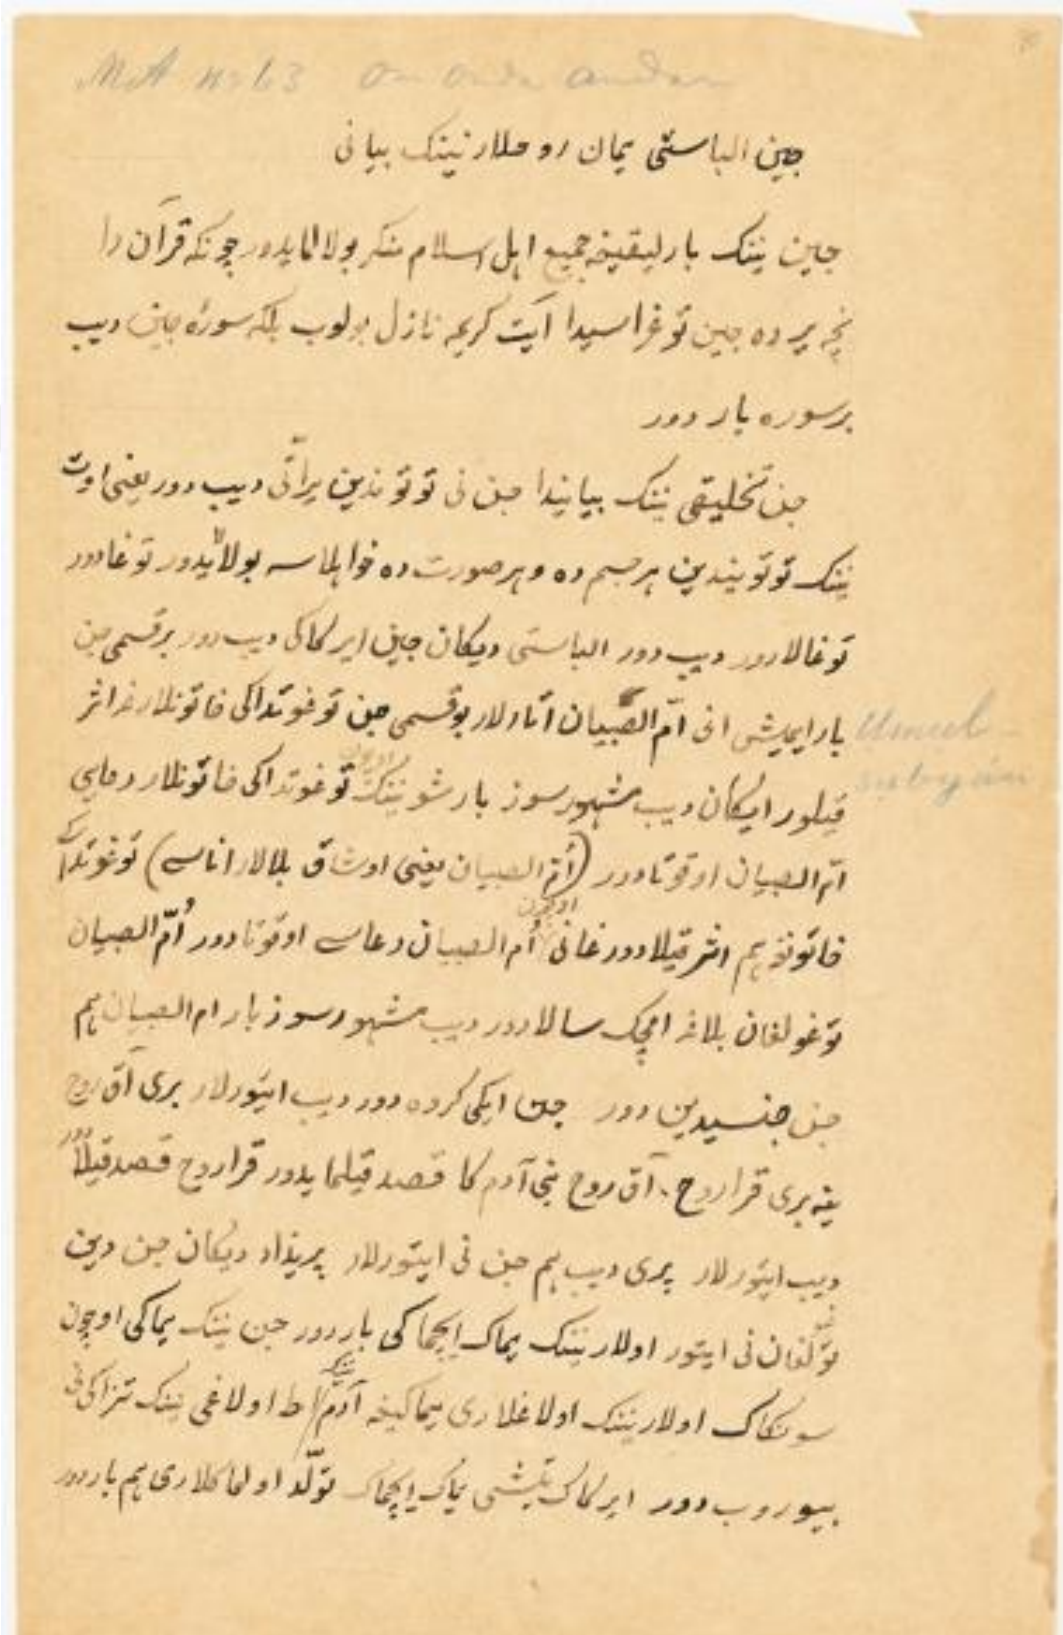 جین الباستی یمان روحلارنینک بیانی
جین نینک بارلیقیغه جمیع اهل اسلام منکر بولالمایدور چونکه قرآن دا
نچه یرده جین توغراسیدا آیت کریمه نازل بولوب بلکه سورهٔ جین دیب
برسوره بار دور
جن تخلیقی نینک بیانیدا جن نی توتوندین یراتی دیب دور یعنی اوت
نینک توتونیدین هر جسم ده و هر صورت ده خواهلاسه بولالایدور توغادور
توغالادور دیب دور الباستی دیکان جین ایرکاکی دیب دور بر قسمی جن
بار ایمیش انی امّ الصّبیان اتادلار بو قسمی جن توغوتداکی خاتونلارغه اثر
Umul-
subyán
قیلور ایکان دیب مشهور سوز بار شونینک اوچون توغوتداکی خاتونلار دعایی
امّ الصبیان اوقوتادور (اُمّ الصبیان یعنی اوشاق بلالار اناسی) توغوتداکی
خاتونغه هم اثر قیلادورغانی اوچون اُم الصبیان دعاسی اوقوتادور اُمّ الصبیان
توغولغان بلاغه امچک سالادور دیب مشهور سوز بار ام الصبیان هم
جن جنسیدین دور جن ایکی کروه دور دیب ایتورلار بری آق روح
ینه بری قرا روح۔ آق روح بنی آدم کا قصد قیلمایدور قرا روح قصد قیلادور
دیب ایتورلار پری دیب هم جن نی ایتورلار پریزاد دیکان جن دین
توغولغان نی ایتور اولارنینک یماک ایچماکی بار دور جن نینک یماکی اوچون
سونکاک اولارنینک اولاغلاری یماکیغه آدم نینک اط اولاغی نینک تزاکی نی
بیوروب دور ایرکاک تیشی یماک ایچماک تولّد اولماکلاری هم بار دور